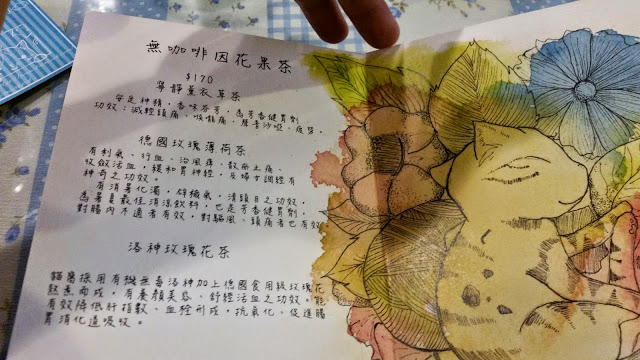 無咖啡因花果茶
$170
寧靜薰衣草茶
安定神精，香味芬芳，為芳香健胃劑
功效：減輕頭痛、喉嚨痛、聲音沙啞、疲勞
德國玫瑰薄荷茶
有利氣、行血、治風痺、散瘀止痛、
收斂活血，緩和胃神經，及婦女調經有
神奇之功效。
有消暑化濁，辟穢氣，清頭目之功效，
為暑夏最佳清涼飲料，也是芳香健胃劑，
對腸內不適者有效，對驅風、頭痛者也有效
洛神玫瑰花茶
貓窩採用有機無毒洛神加上德國食用級玫瑰花
熬煮而成，有養顏美容、舒經活血之功效。能
有效降低肝指數、血栓形成，抗氧化、促進腸
胃消化道吸收。